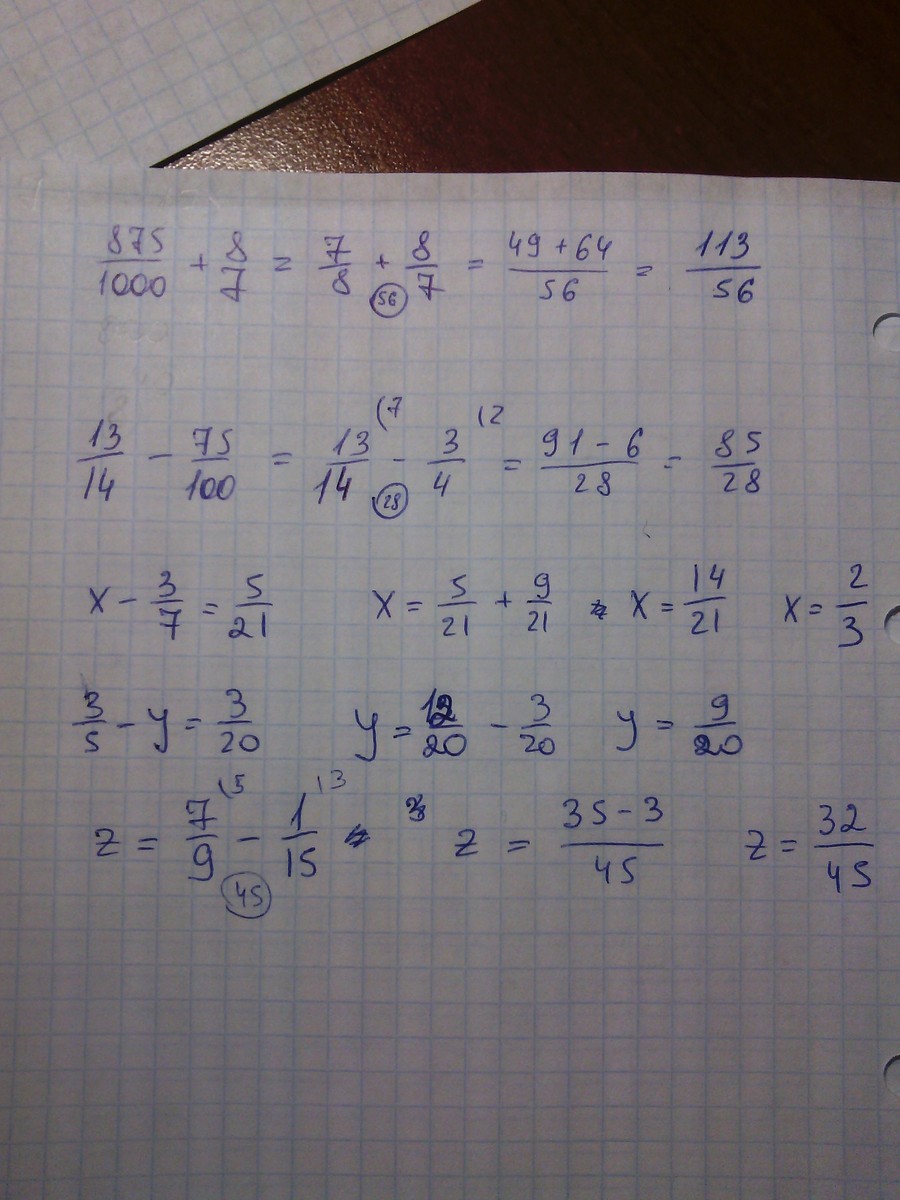 875/1000 + 8/7 = 7/8 + 8/7 (56) = (49 + 64)/56 = 113/56
13/14 - 75/100 = 13/14 (7 - 3/4 (2 (28) = (91 - 6)/28 = 85/28
x - 3/7 = 5/21 x = 5/21 + 9/21 x = 14/21 x = 2/3
3/5 - y = 3/20 y = 12/20 - 3/20 y = 9/20
z = 7/9 (5 - 1/15 (3 (45) z = (35 - 3)/45 z = 32/45